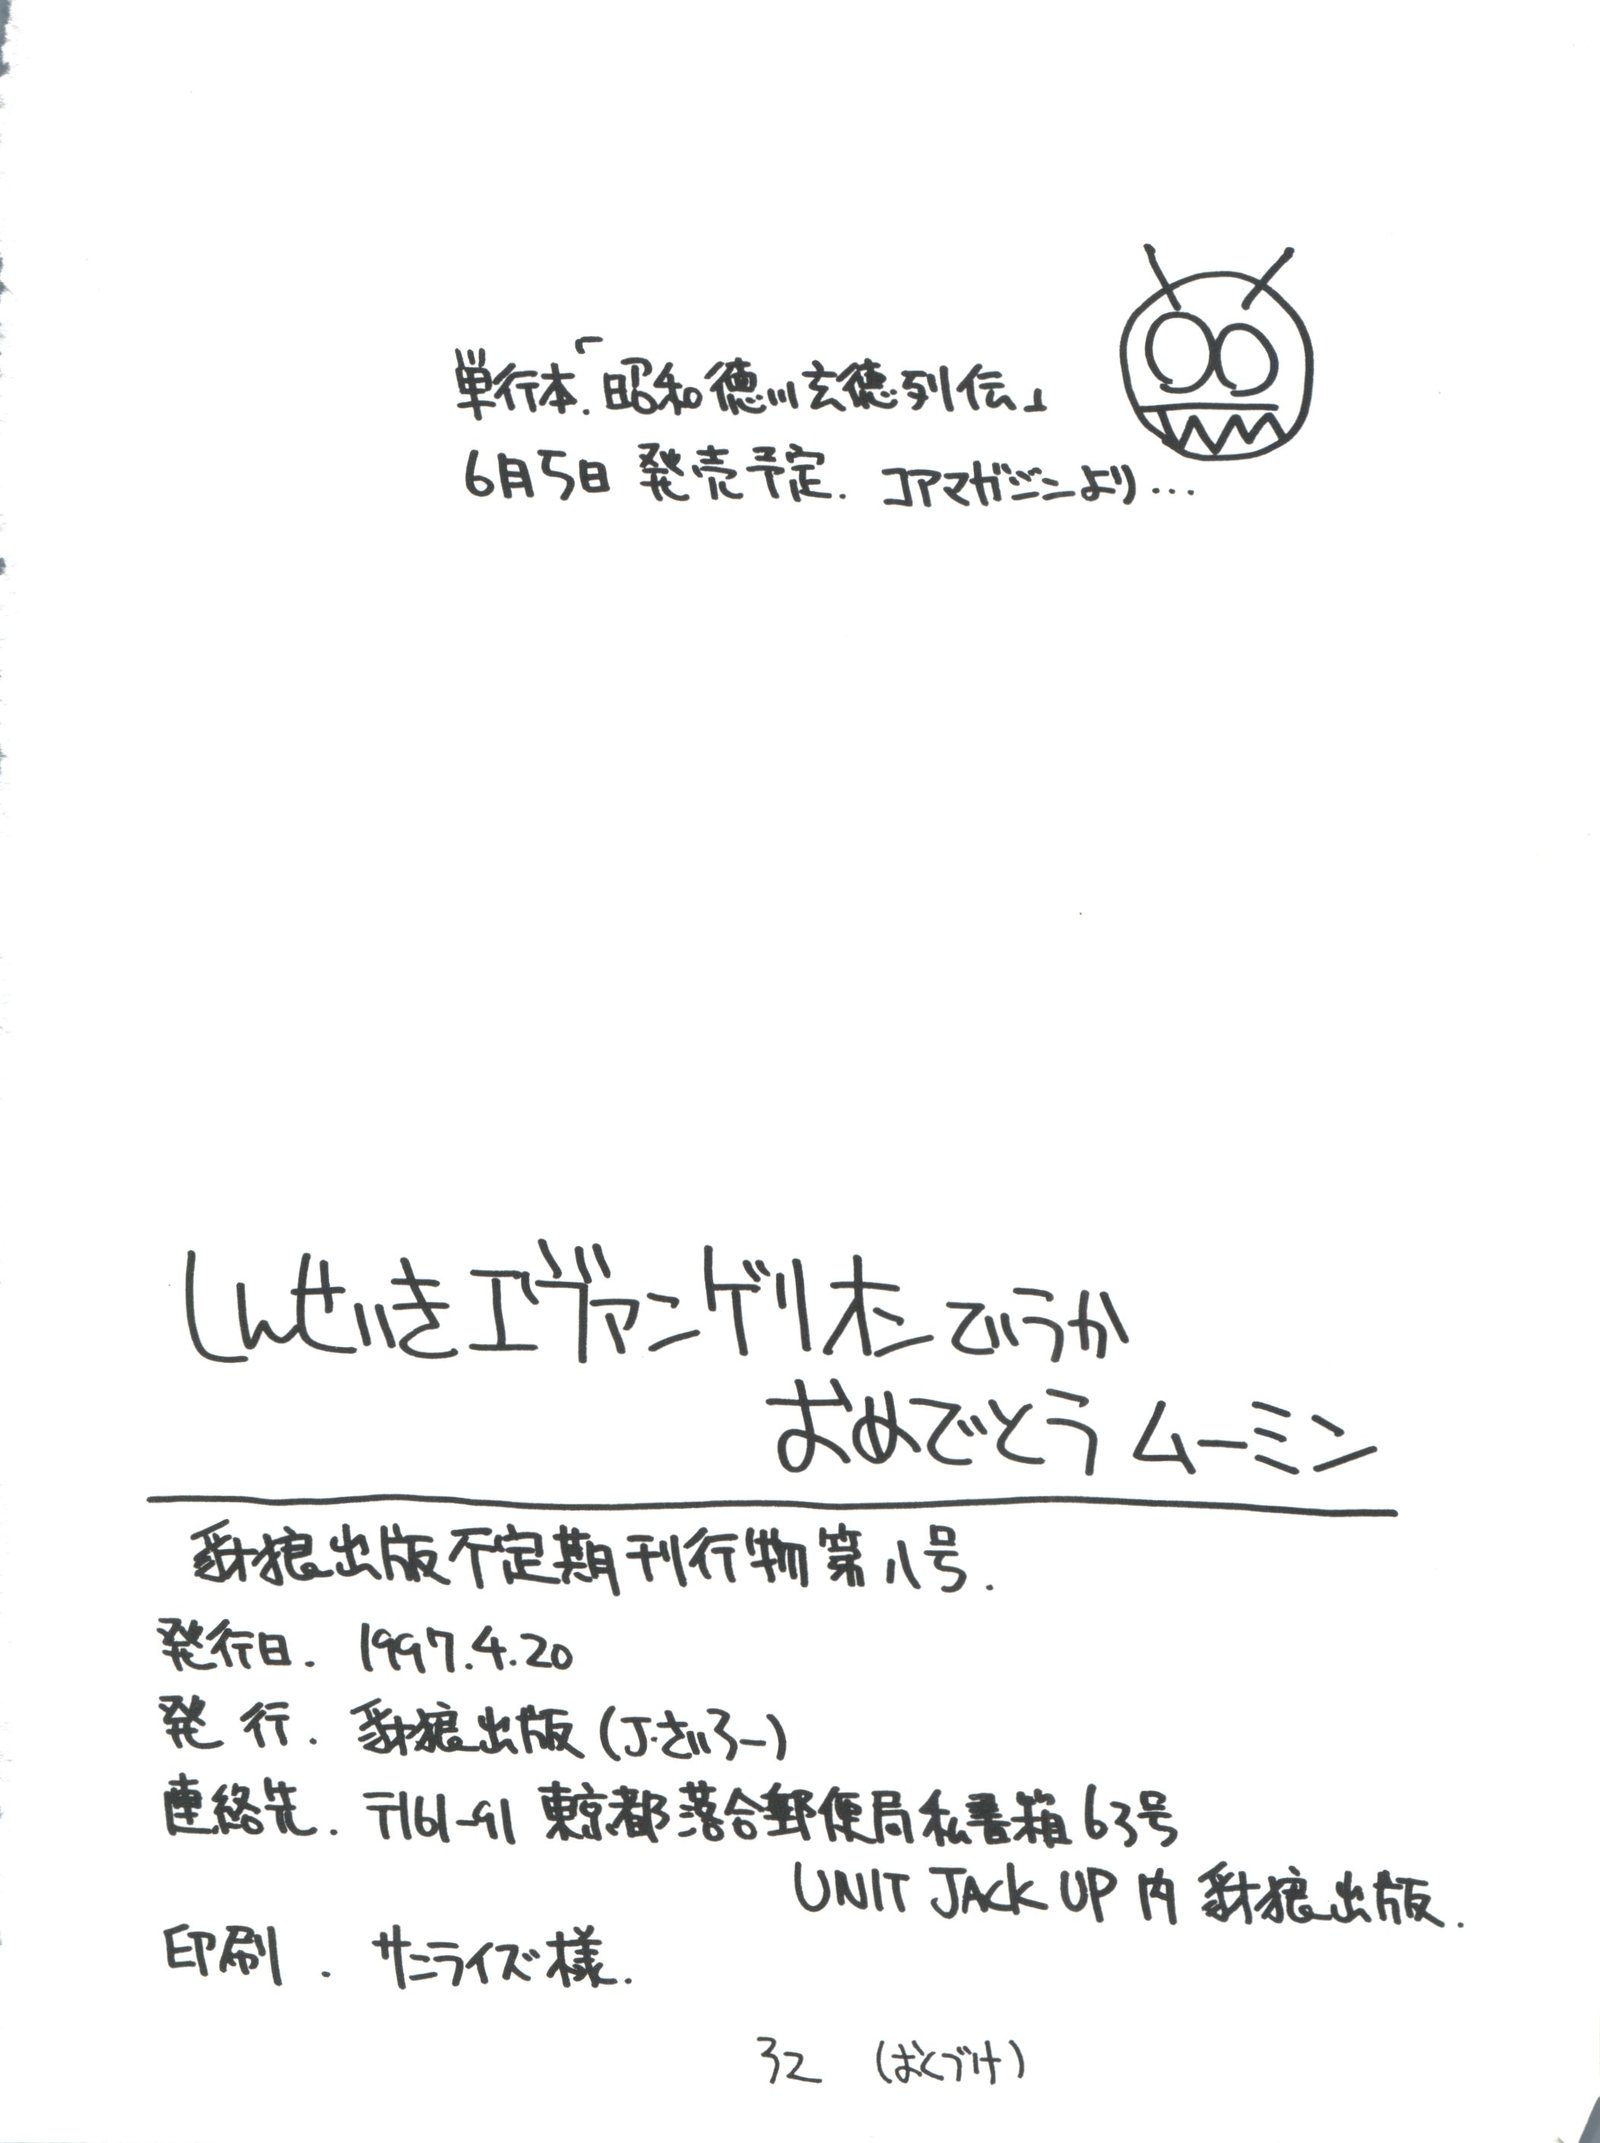 単行本.「昭和徳川玄徳列伝」
6月5日 発売予定. コアマガジンより...
しんせいきエヴァンゲリオンていうか
おめでとうムーミン
豺狼出版不定期刊行物第八号.
発行日. 1997.4.20
発 行. 豺狼出版 (J・さいろー)
連絡先. 〒161-91 東京都落合郵便局私書箱63号
UNIT JACK UP 内 豺狼出版.
印刷. サンライズ様.
32 (おくづけ)